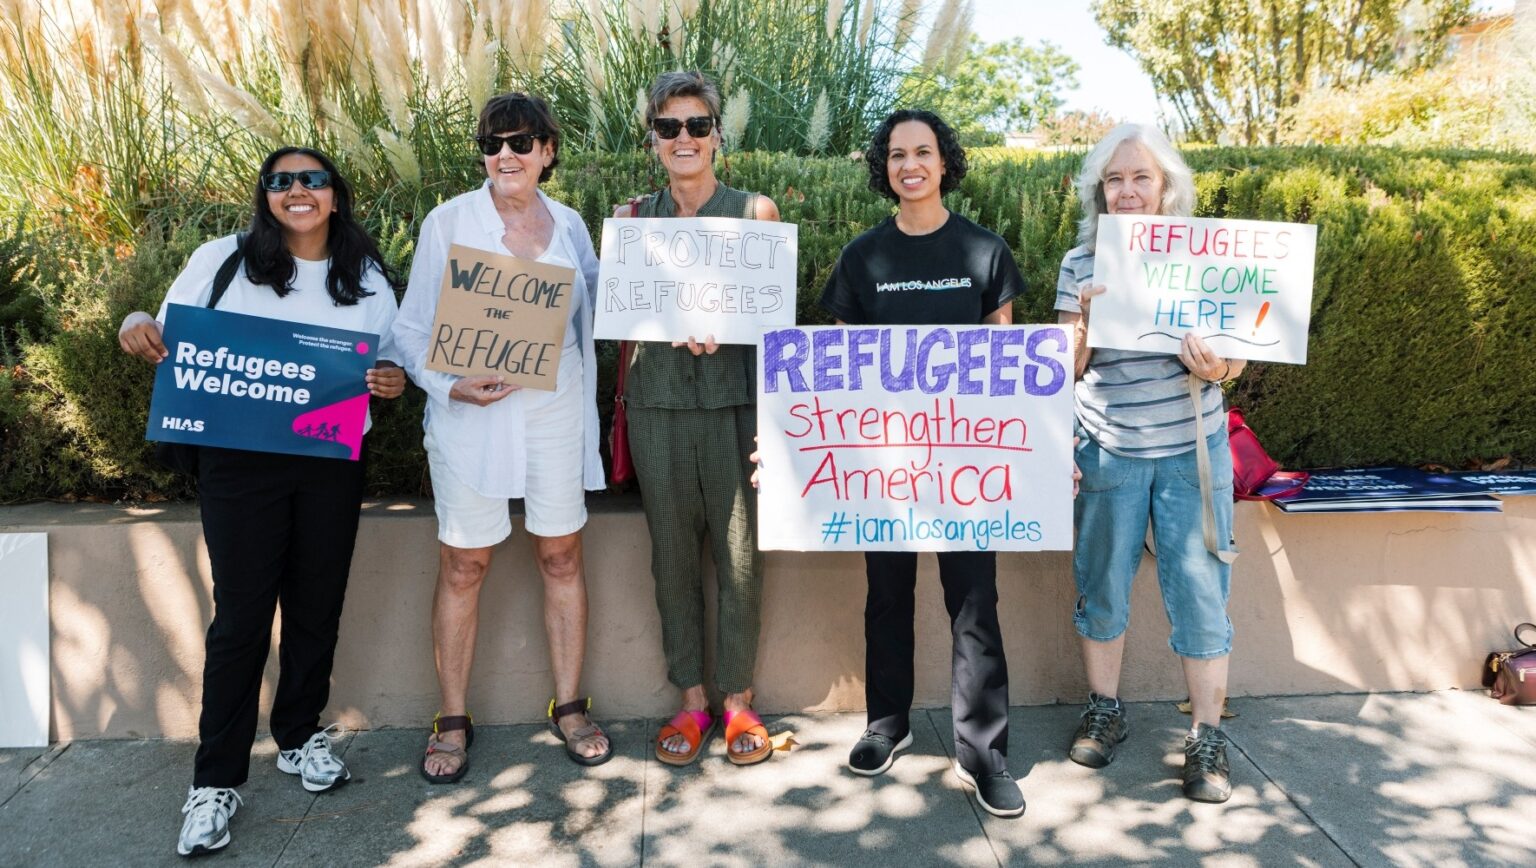 Welcome the stranger.
Protect the refugee.
Refugees
Welcome
HIAS
WELCOME
THE
REFUGEE
PROTECT
REFUGEES
I AM LOS ANGELES
REFUGEES
strengthen
America
#iamlosangeles
REFUGEES
WELCOME
HERE!